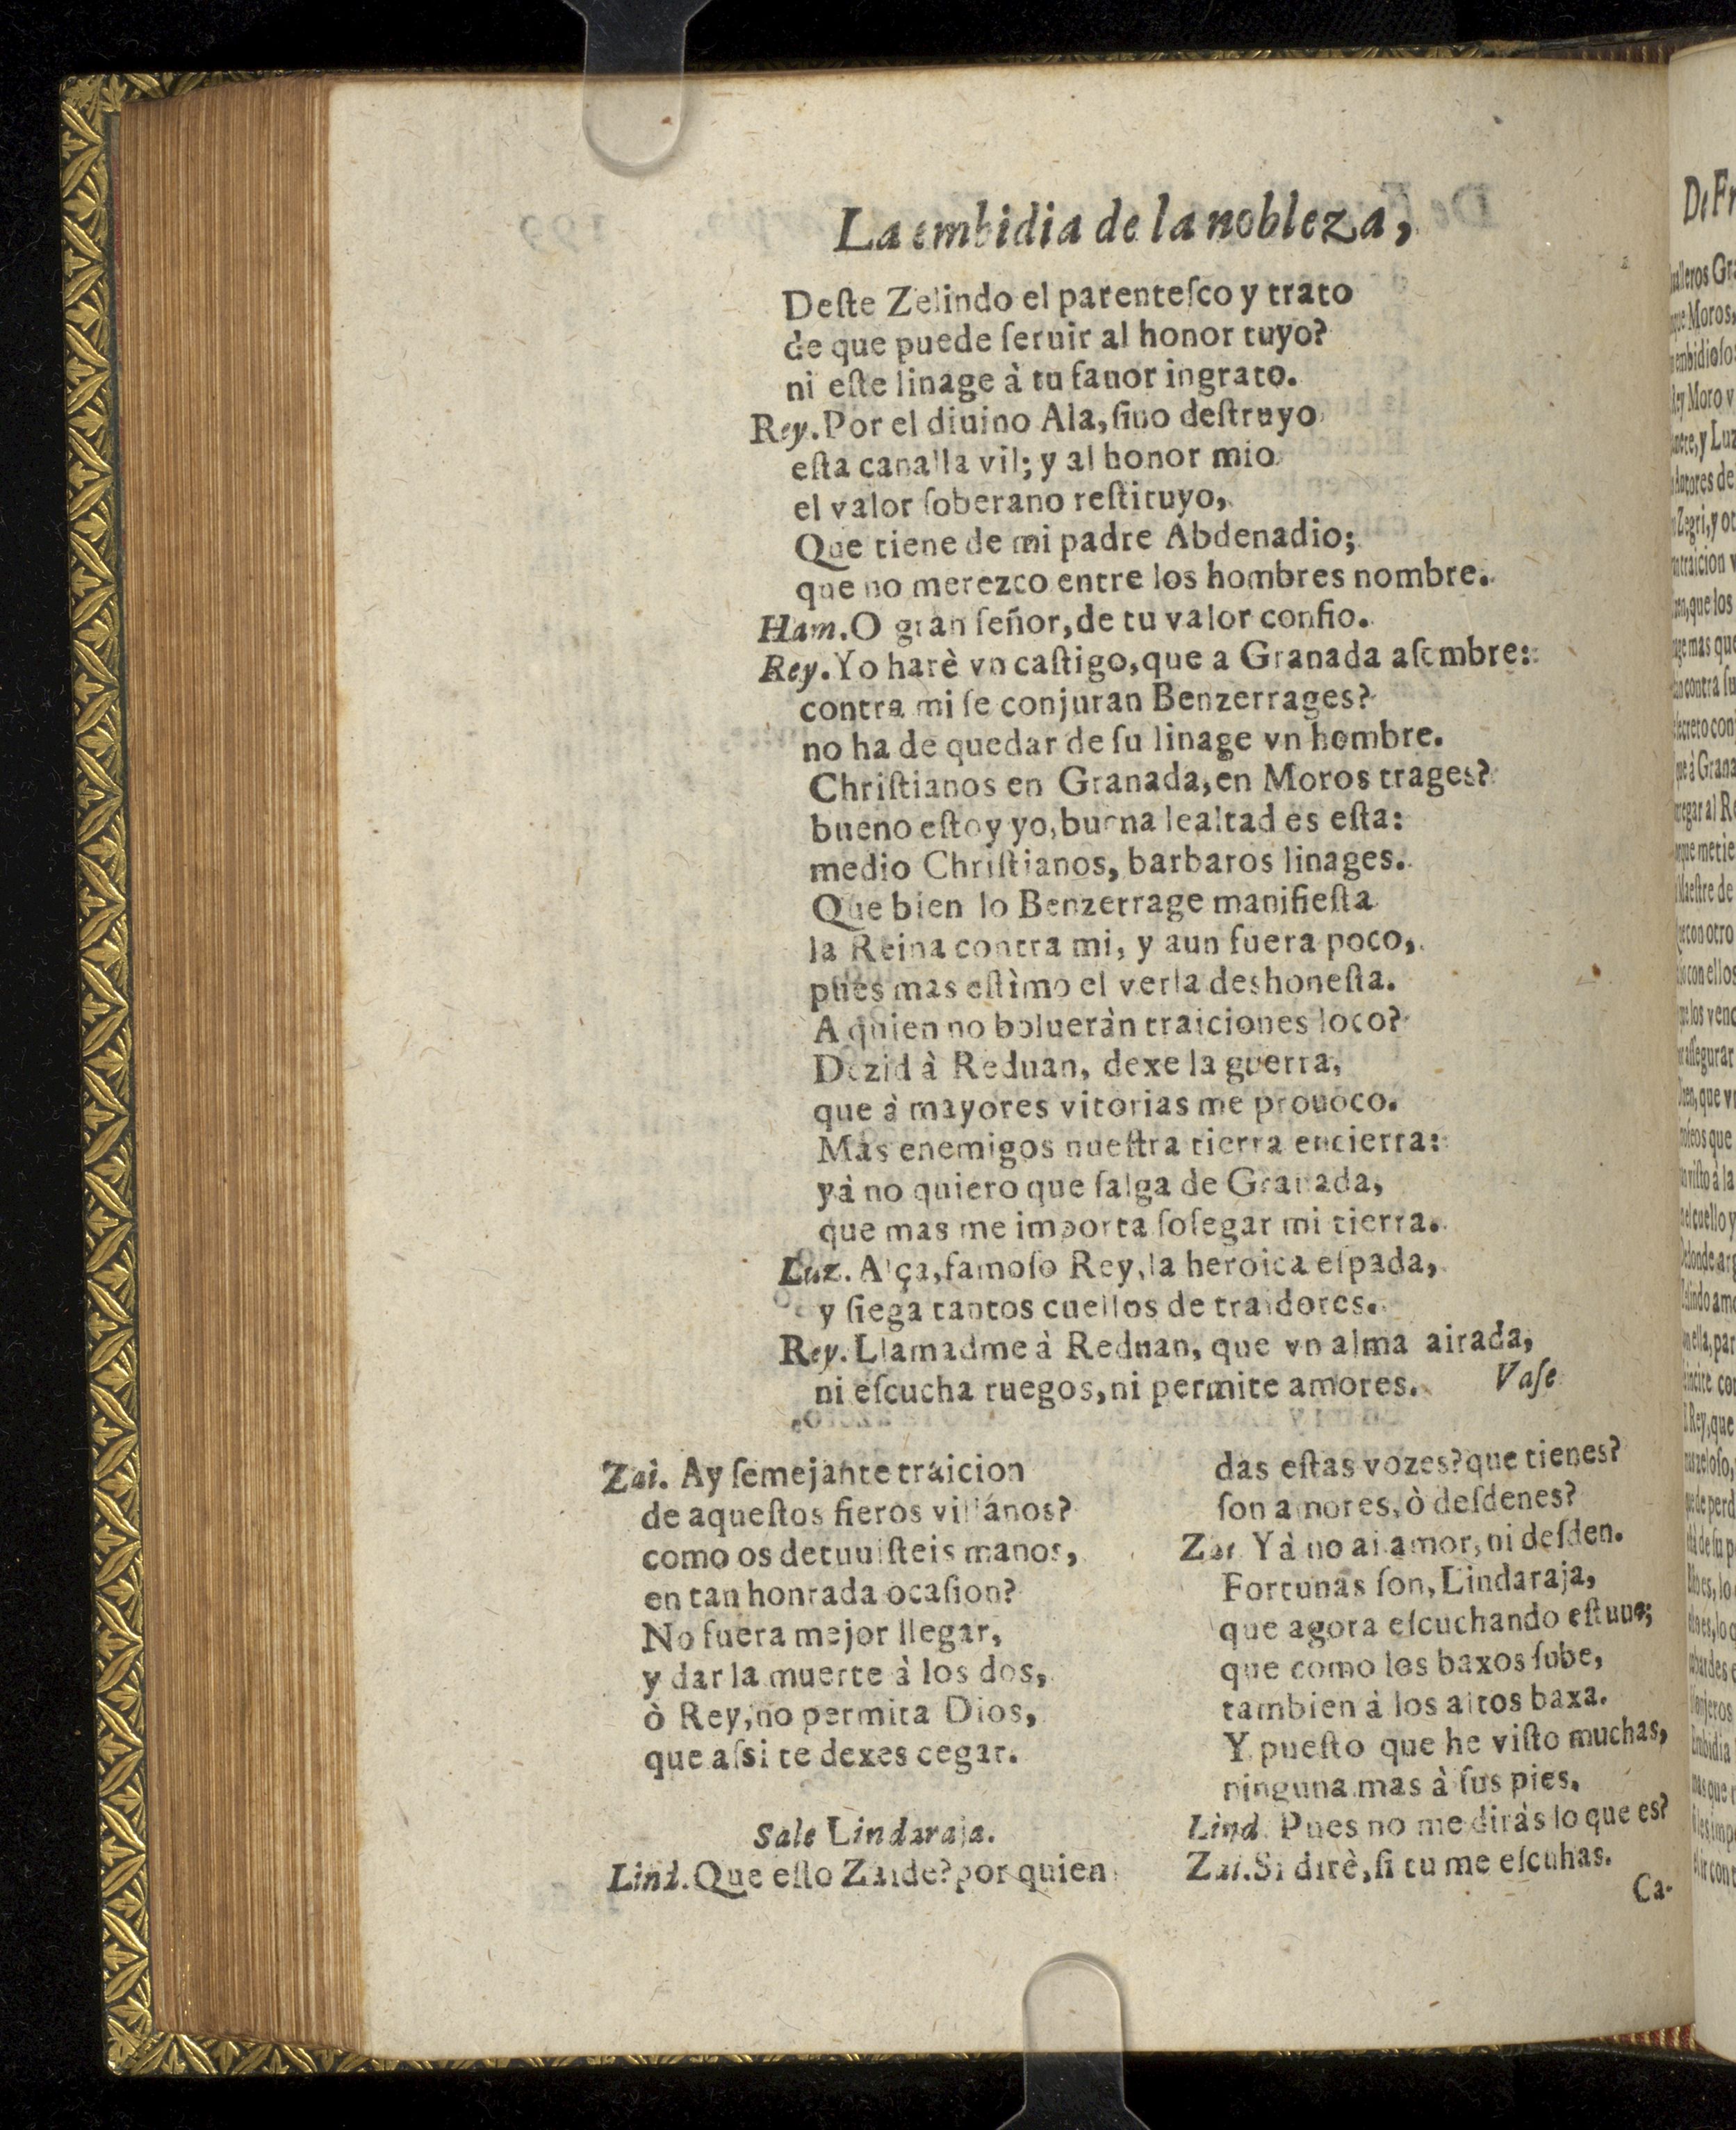 La embidia de la nobleza,
Deſte Zelindo el parenteſco y trato
de que puede ſeruir al honor tuyo?
ni eſte linage à tu fauor ingrato.
Rey. Por el diuino Ala, ſino deſtruyo
eſta canalla vil; y al honor mio
el valor ſoberano reſtituyo,
Que tiene de mi padre Abdenadio;
que no merezco entre los hombres nombre.
Ham. O gran ſeñor, de tu valor confio.
Rey. Yo harè vn caſtigo, que a Granada aſombre:
contra mi ſe conjuran Benzerrages?
no ha de quedar de ſu linage vn hombre.
Chriſtianos en Granada, en Moros trages?
bueno eſtoy yo, buena lealtad es eſta:
medio Chriſtianos, barbaros linages.
Que bien lo Benzerrage manifieſta
la Reina contra mi, y aun fuera poco,
pues mas eſtimo el verla deshoneſta.
A quien no bolueràn traiciones loco?
Dezid à Reduan, dexe la guerra,
que à mayores vitorias me prouoco.
Mas enemigos nueſtra tierra encierra:
yà no quiero que ſalga de Granada,
que mas me importa ſoſegar mi tierra.
Luz. Alça, famoſo Rey, la heroica eſpada,
y ſiega tantos cuellos de traidores.
Rey. Llamadme à Reduan, que vn alma airada,
ni eſcucha ruegos, ni permite amores. Vaſe
Zai. Ay ſemejante traicion
de aqueſtos fieros villános?
como os detuuiſteis manos,
en tan honrada ocaſion?
No fuera mejor llegar,
y dar la muerte à los dos,
ò Rey, no permita Dios,
que aſsi te dexes cegar.
Sale Lindaraja.
Lind. Que eſto Zaide? por quien
das eſtas vozes? que tienes?
ſon amores, ò deſdenes?
Zai. Yà no ai amor, ni deſden.
Fortunas ſon, Lindaraja,
que agora eſcuchando eſtuue;
que como los baxos ſube,
tambien à los altos baxa.
Y pueſto que he viſto muchas,
ninguna mas à ſus pies.
Lind. Pues no me diràs lo que es?
Zai. Si dirè, ſi tu me eſcuhas.
Ca-
De Fr